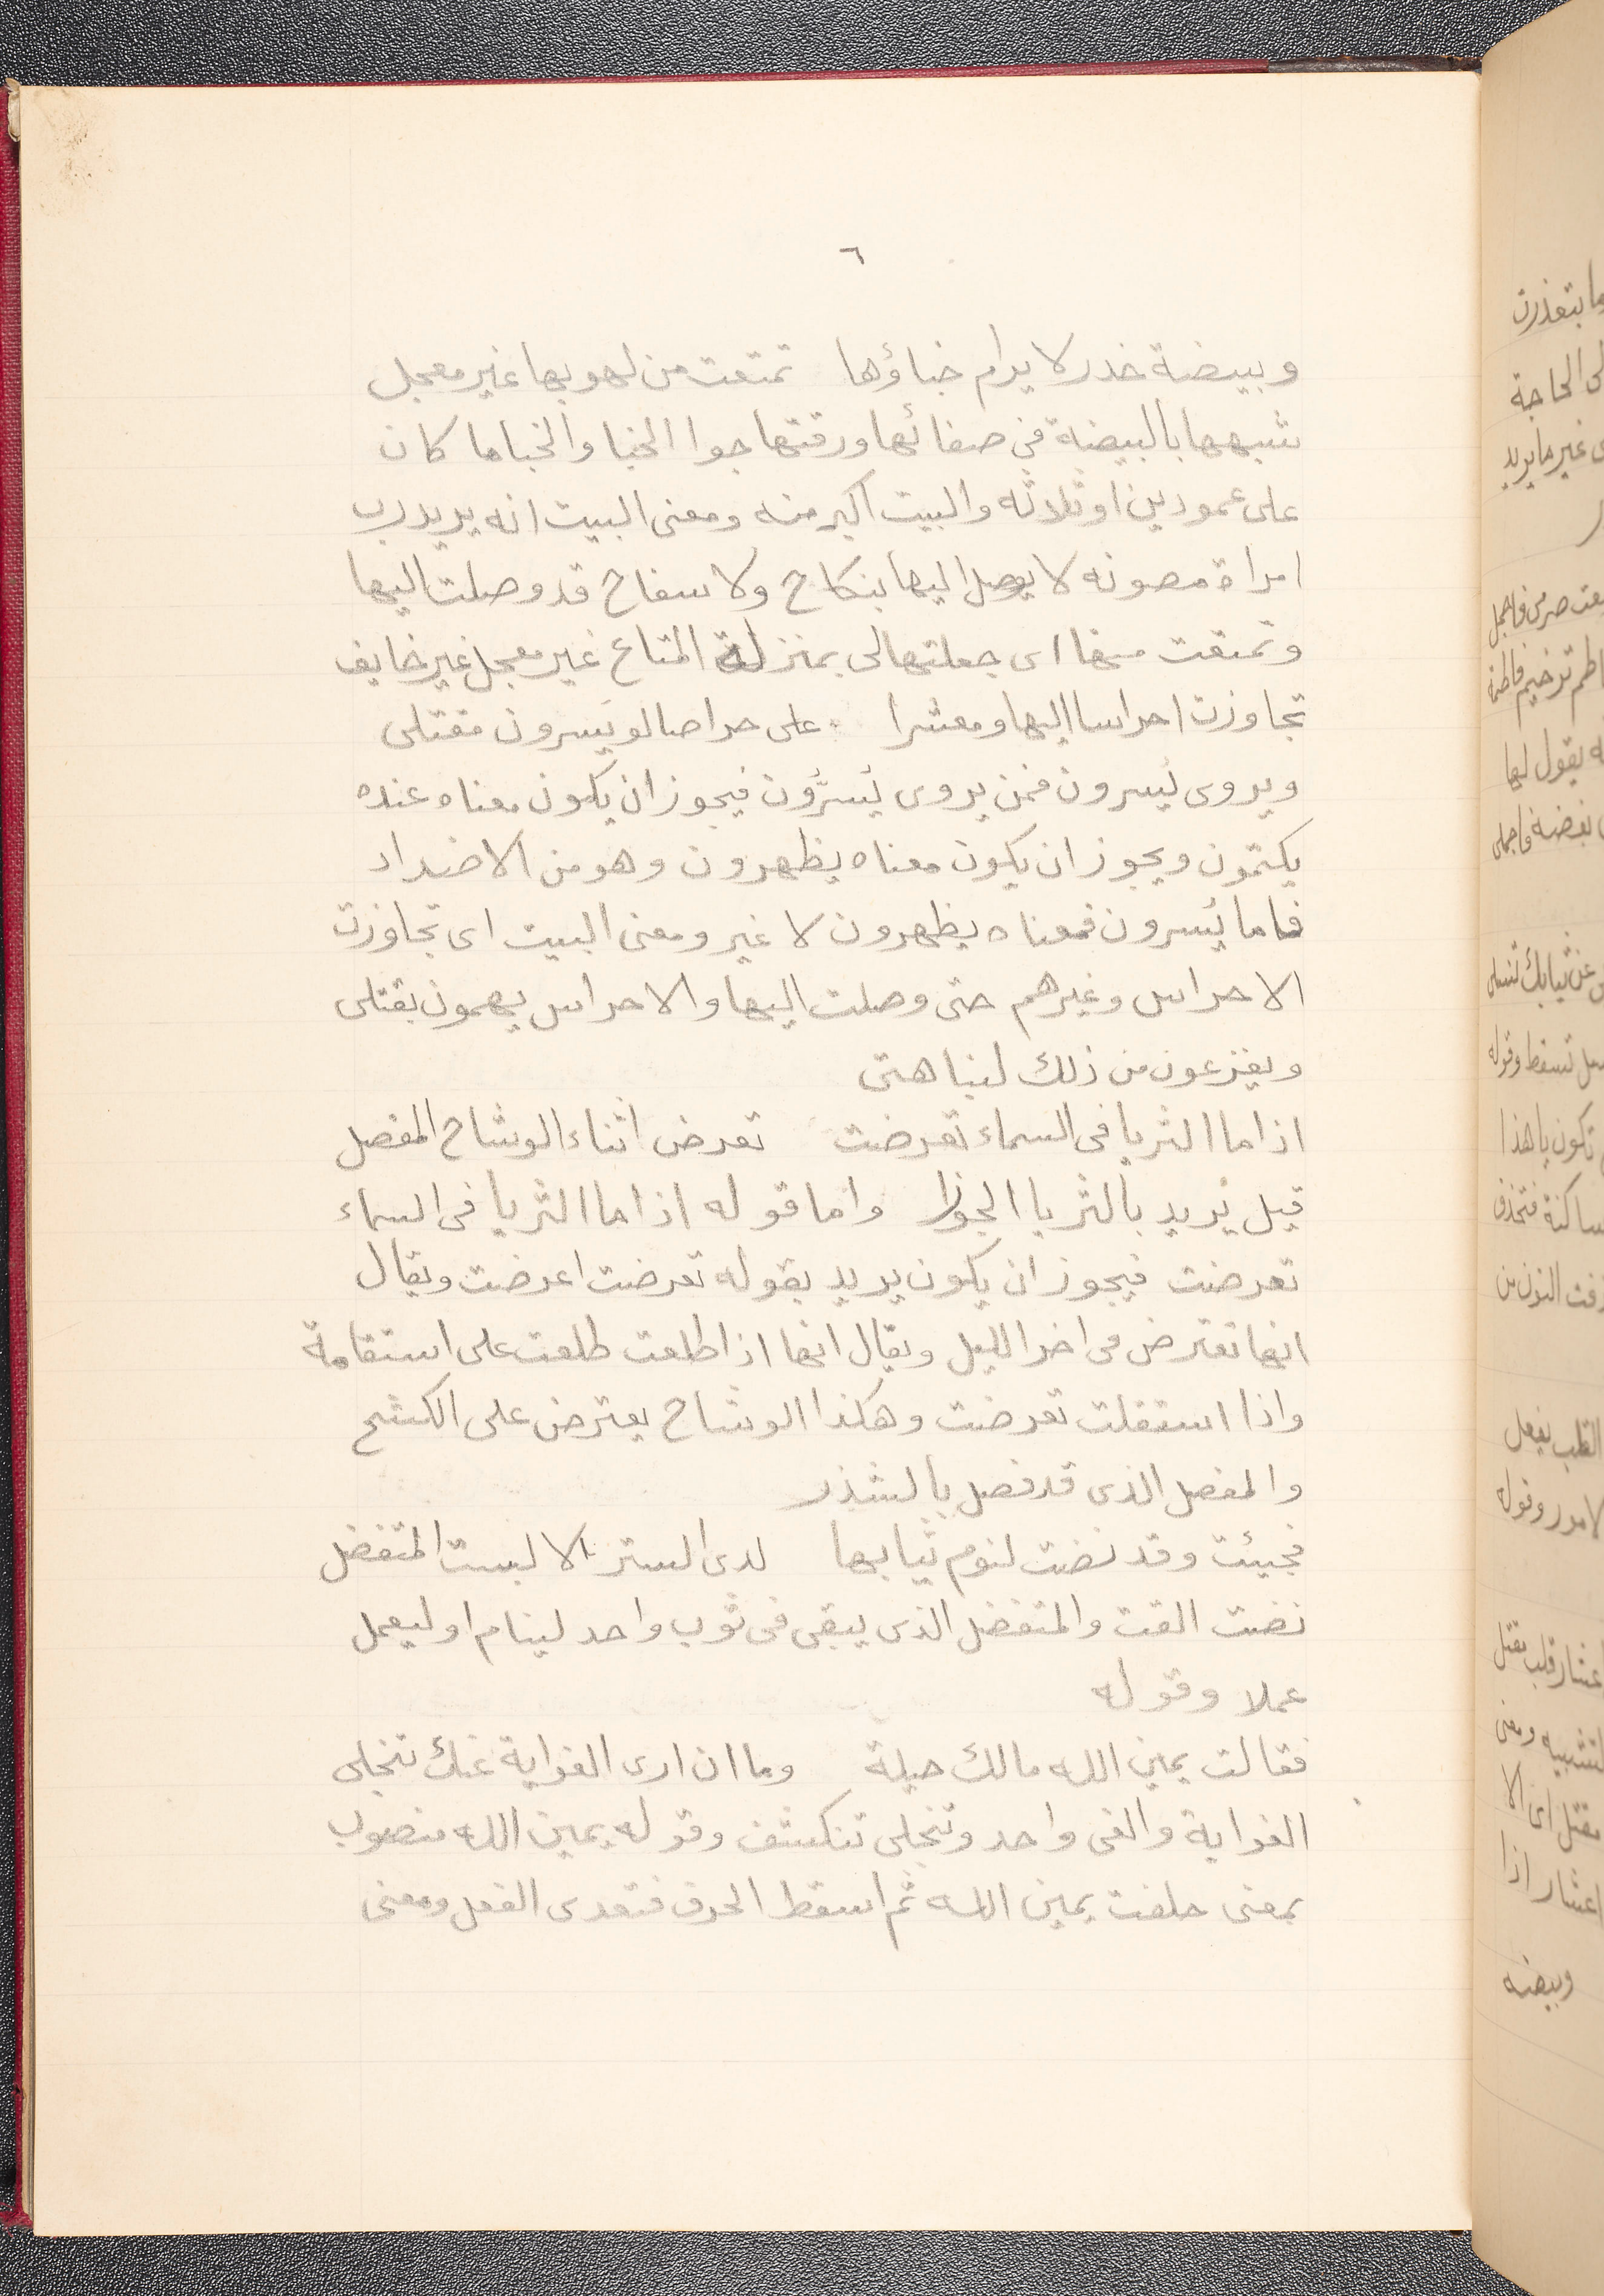 ٦
وبيضة خدر لا يرام خباؤها تمتعت من لهو بها غير معجل
شبهها بالبيضة في صفائها ورقتها جوا الخبا والخبا ما كان
على عمودين او ثلاثه والبيت اكبر منه ومعنى البيت انه يريد رب
امراة مصونه لا يوصل اليها بنكاح ولا سفاح قد وصلت اليها
وتمتعت منها اى جعلتها لى بمنزلة المتاع غير معجل غير خايف
تجاوزت احراسا اليها ومعشرا على حراصا لو يسرون مقتلى
ويروى يسرون فمن يروى يُسرُّون فيجوز ان يكون معناه عنده
يكتمون ويجوز ان يكون معناه يظهرون وهو من الاضداد
فاما يسرون فمعناه يظهرون لا غير ومعنى البيت اى تجاوزت
الاحراس وغيرهم حتى وصلت اليها والاحراس يهمون بقتلى
ويفزعون من ذلك لنباهتى
اذا ما الثريا فى السماء تعرضت تعرض اثناء الوشاح المفصل
قيل يريد بالثريا الجوزا واما قوله اذا ما الثريا فى السماء
تعرضت فيجوز ان يكون يريد بقوله تعرضت اعرضت ويقال
انها تعترض فى اخر الليل ويقال انها اذا طلعت طلعت على استقامة
واذا استقلت تعرضت وهكذا الوشاح يعترض على الكشح
والمفصل الذى قد فصل بالشذر
فجيئت وقد نضت لنوم ثيابها لدى الستر الا لبست المتفضل
نضت القت والمتفضل الذى يبقى فى ثوب واحد لينام او ليعمل
عملا وقوله
فقالت يمين الله مالك حيلة وما ان ارى الغواية عنك تنجلى
الغواية والغى واحد وتنجلى تنكشف وقوله يمين الله منصوب
بمعنى حلفت بمين الله ثم اسقط الحرف فتعدى الفعل ومعنى